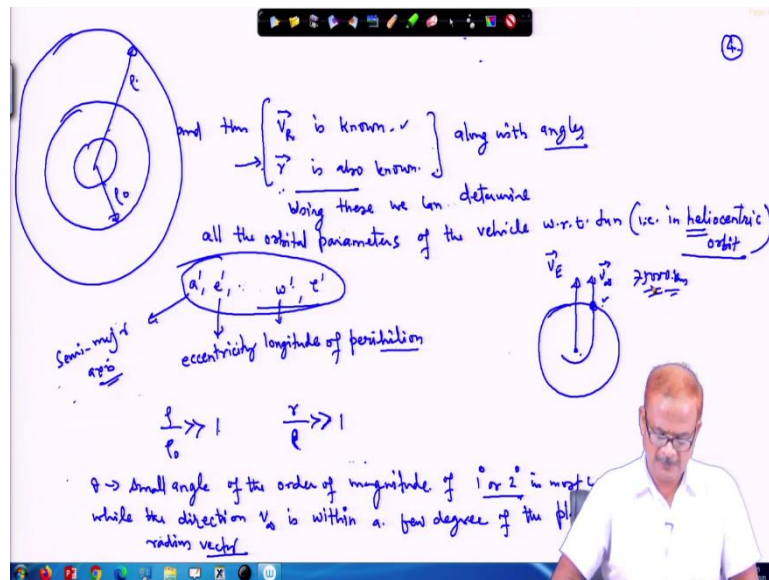 4.
ρ
ρ₀
and thus [ V⃗R is known. ✓ ] along with angles
→ r⃗ is also known.
Using these we can determine
all the orbital parameters of the vehicle w.r.t. Sun (i.e. in heliocentric orbit)
V⃗E V⃗∞ 75000 km
a', e', .. w', τ'
Semi-major axis
eccentricity longitude of perihilion
ρ/ρ₀ >> 1 r/ρ >> 1
θ → small angle of the order of magnitude of 1° or 2° in most
while the direction V∞ is within a few degree of the
radius vector